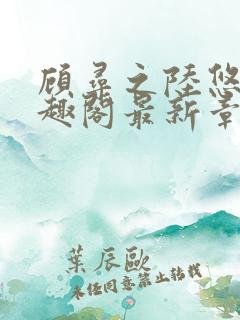 顾寻之陆悠
趣阁最新章
葉辰歐
未经同意禁止转载